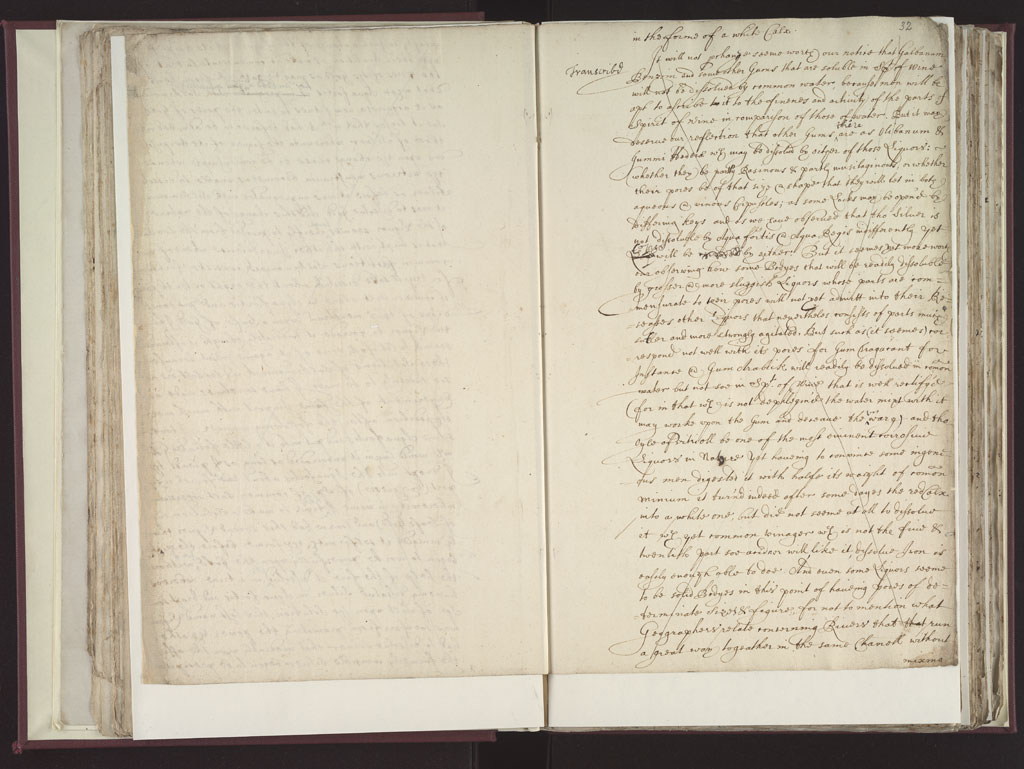 32
in the forme of a white Calx.
Transcrib'd
It will not perhaps seeme worth our notice that Galbanum
Benzoin and some other Gums that are soluble in Spt. of Wine
will not be dissolved by common water, because men will be
apt to ascribe it to the finenes and activity of the parts of
Spirit of Wine in comparison of those of water. But it may
deserve our reflection that other Gums, there are as Olibanum &
Gummi Hederæ wch may be dissolu'd by either of those Liquors: or
whether they be partly Rasinous & partly musilaginous, or whether
their pores be of that size & shape that they will let in both
aqueous & vinous Corpuscles; as some Locks may be open'd by
differing keys and as we have observed that tho Silver is
not dissoluble by Aqua fortis & Aqua Regis indifferently yet
will be by either. But it seemes yet more worth
our observing how some Bodyes that will be readily dissoluble
by grosser & more sluggish Liquors whose parts are com-
mensurate to their pores will not yet admitt into their Re-
cesses other Liquors that neverthelos consists of parts much
subtler and more strongly agitated. But such as (it seemes) cor
respond not well with its pores for Gum Dragacant for
Instance & Gum Arabick will readily be dissolved in comon
water but not soe in Spt. of Wine that is well rectify'd
(for in that wch is not dephlegm'd the water mixt with it
may worke upon the Gum and deceive the wary) and tho
Oyle of Vitrioll be one of the most eminent corrosive
Liquors in Nature. Yet haveing to convince some ingeni
ous men digested it with halfe its weight of comon
Minium it turn'd indeed after some dayes the red Calx
into a white one, but did not seeme at all to dissolve
it wch yet common vinager wch is not the five &
twentieth part soe will like it dissolve Iron is
easily enough able to doe. And even some Liquors seeme
to be solid Bodyes in this point of haveing pores of de-
terminate sizes & figure, for not to mention what
Geographers relate concerning Rivers that run
a great way togeather in the same Chanell without
mixing